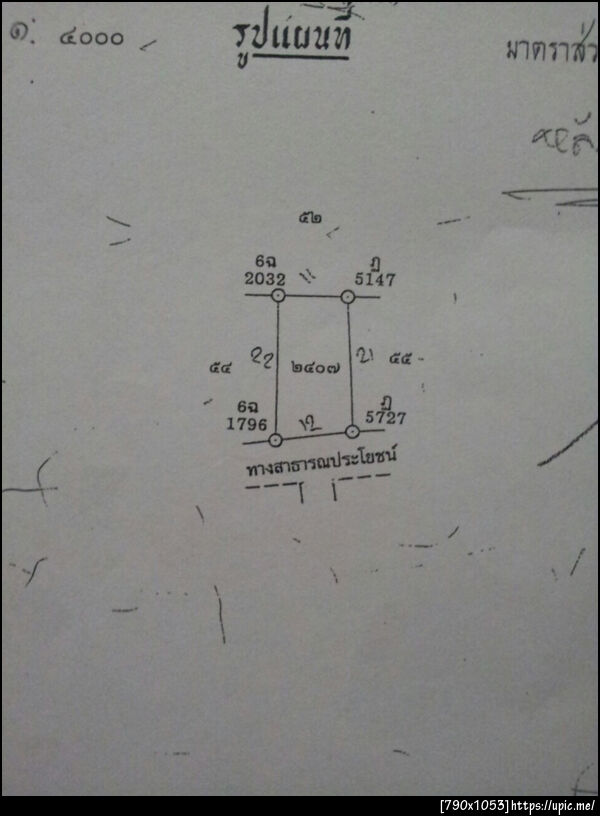 ๑: ๔๐๐๐
รูปแผนที่
มาตราส่ว
๕๒
6ฉ
2032
11
ฏ
5147
๕๔
22
๒๔๐๗
21
๕๕
6ฉ
1796
12
ฏ
5727
ทางสาธารณประโยชน์
[790x1053] https://upic.me/